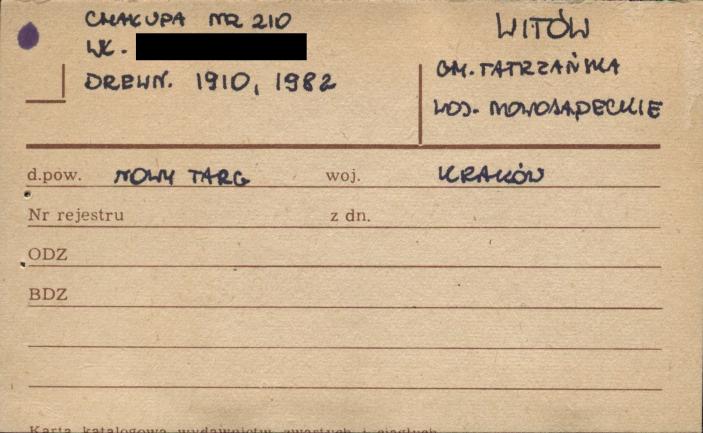 CHAŁUPA NR 210
WŁ.
DREWN. 1910, 1982
WITÓW
GM. TATRZAŃSKA
WOJ. NOWOSĄDECKIE
d.pow. NOWY TARG woj. KRAKÓW
Nr rejestru z dn.
ODZ
BDZ
Karta katalogowa wydawnictw zwartych i ciągłych